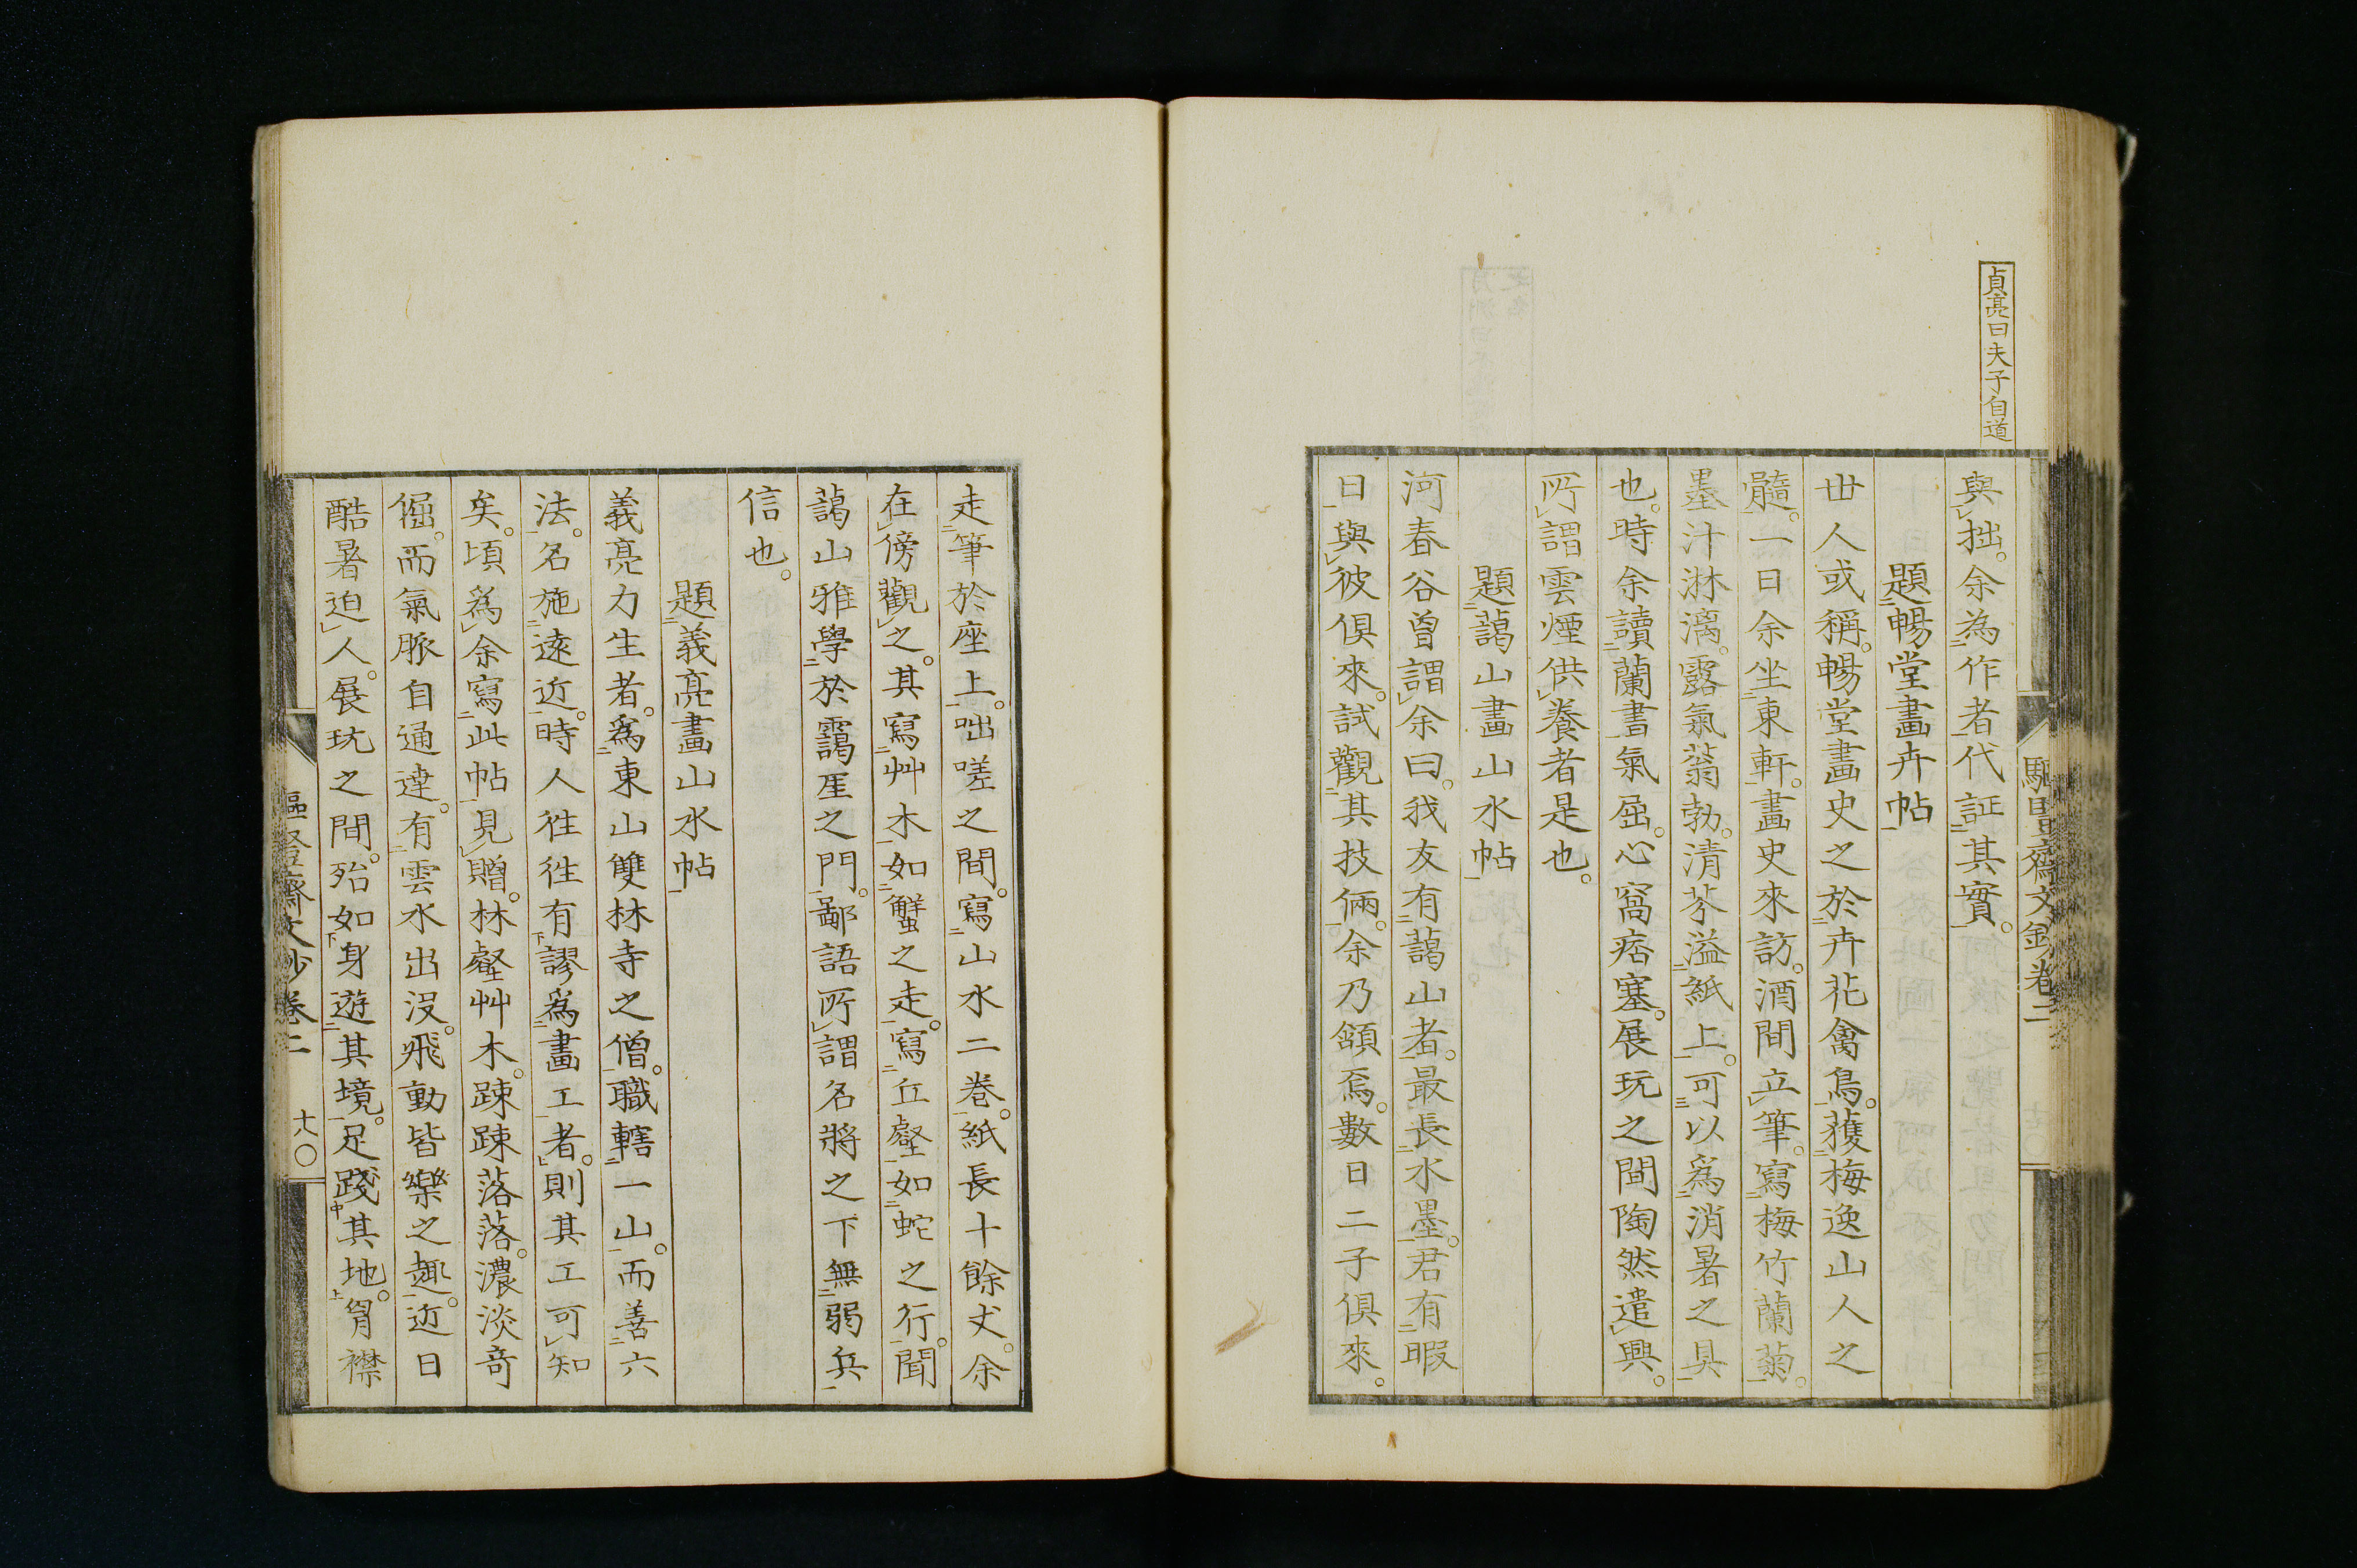 貞亮曰夫子自道
與拙。余為作者代証其實。
題暢堂畫卉帖
世人或稱。暢堂畫史之於卉花禽鳥。獲梅逸山人之
髓。一日余坐東軒。畫史來訪。酒間立筆。寫梅竹蘭菊。
墨汁淋漓。露氣蓊勃。清芬溢紙上。可以為消暑之具
也。時余讀蘭書氣屈。心窩痞塞。展玩之間陶然遣興。
所謂雲煙供養者是也。
題藹山畫山水帖
河春谷曾謂余曰。我友有藹山者。最長水墨。君有暇
日與彼俱來。試觀其技倆。余乃頷焉。數日二子俱來。
走筆於座上。咄嗟之間。寫山水二卷。紙長十餘丈。余
在傍觀之。其寫艸木如蟹之走。寫丘壑如蛇之行。聞
藹山雅學於靄厓之門。鄙語所謂名將之下無弱兵
信也。
題義亮畫山水帖
義亮力生者。為東山雙林寺之僧。職轄一山。而善六
法。名施遠近。時人往往有謬為畫工者。則其工可知
矣。頃為余寫此帖見贈。林壑艸木。踈踈落落。濃淡奇
倔。而氣脈自通達。有雲水出沒。飛動皆樂之趣。近日
酷暑迫人。展玩之間。殆如身遊其境。足踐其地。胷襟
驅豎齋文鈔卷二
十八